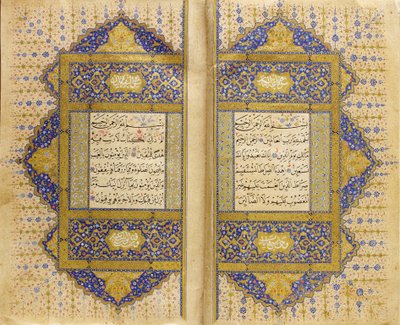 بسم الله الرحمن الرحيم
الحمد لله رب العالمين الرحمن
الرحيم ملك يوم الدين اياك نعبد واياك
نستعين اهدنا الصراط المستقيم
صراط الذين انعمت عليهم غير
المغضوب عليهم ولا الضالين
بسم الله الرحمن الرحيم
الم ذلك الكتاب لا ريب فيه
هدى للمتقين الذين يؤمنون
بالغيب ويقيمون الصلوة ومما رزقناهم ينفقون
والذين يؤمنون بما انزل اليك
وما انزل من قبلك وبالاخرة هم يوقنون